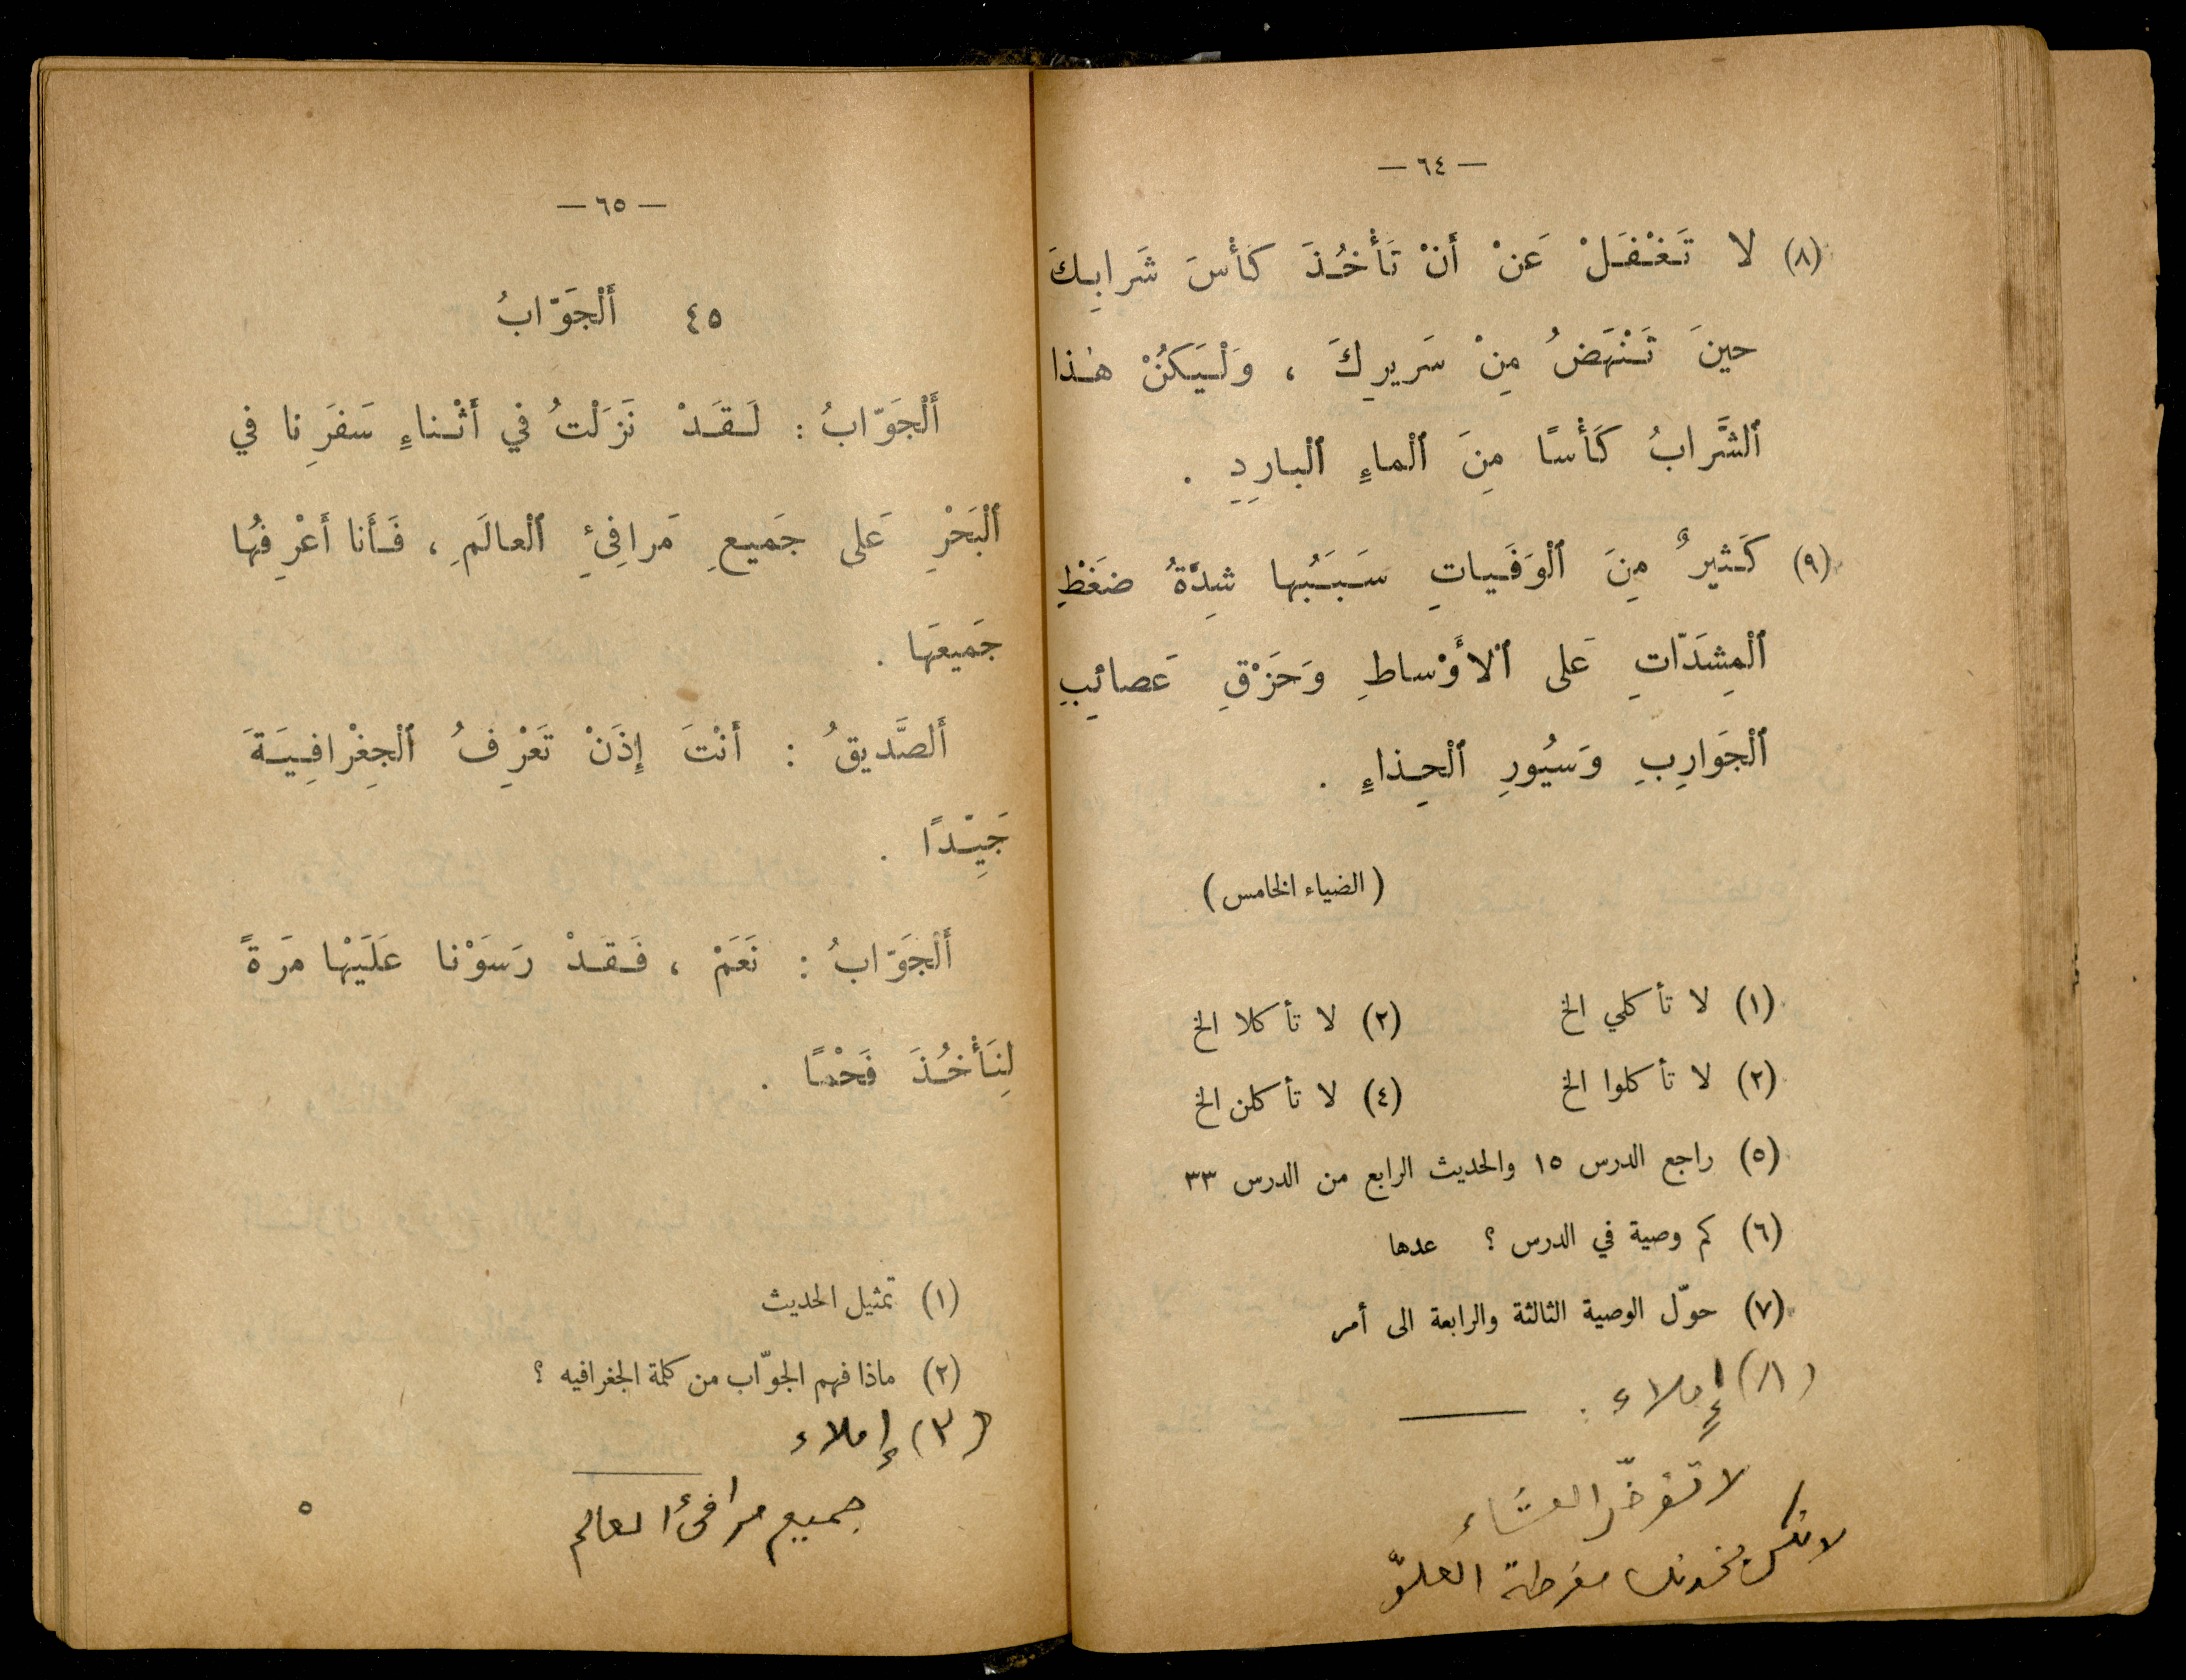 — ٦٤ —
(٨) لا تَغْفَلْ عَنْ أَنْ تَأْخُذَ كَأْسَ شَرابِكَ
حينَ تَنْهَضُ مِنْ سَريرِكَ ، وَلْيَكُنْ هٰذا
ٱلشَّرابُ كَأْسًا مِنَ ٱلْماءِ ٱلْبارِدِ .
(٩) كَثيرٌ مِنَ ٱلْوَفَياتِ سَبَبُها شِدَّةُ ضَغْطِ
ٱلْمِشَدّاتِ عَلى ٱلْأَوْساطِ وَحَزْقِ عَصائِبِ
ٱلْجَوارِبِ وَسُيُورِ ٱلْحِذاءِ .
(الضياء الخامس)
(١) لا تأكلي الخ (٢) لا تأكلا الخ
(٢) لا تأكلوا الخ (٤) لا تأكلن الخ
(٥) راجع الدرس ١٥ والحديث الرابع من الدرس ٣٣
(٦) كم وصية في الدرس ؟ عدها
(٧) حوّل الوصية الثالثة والرابعة الى أمر
(٨) إملاء :
لا تؤخّر العشاء
لا تكن مخدتك مفرطة العلوّ
— ٦٥ —
٤٥ أَلْجَوّابُ
أَلْجَوّابُ : لَقَدْ نَزَلْتُ في أَثْناءِ سَفَرِنا في
ٱلْبَحْرِ عَلى جَميعِ مَرافِئِ ٱلْعالَمِ ، فَأَنا أَعْرِفُها
جَميعَها .
أَلصَّديقُ : أَنْتَ إِذَنْ تَعْرِفُ ٱلْجِغْرافِيَةَ
جَيِّدًا .
أَلْجَوّابُ : نَعَمْ ، فَقَدْ رَسَوْنا عَلَيْها مَرَةً
لِنَأْخُذَ فَحْمًا .
(١) تمثيل الحديث
(٢) ماذا فهم الجوّاب من كلمة الجغرافيه ؟
(٣) إملاء
جميع مرافئ العالم
٥